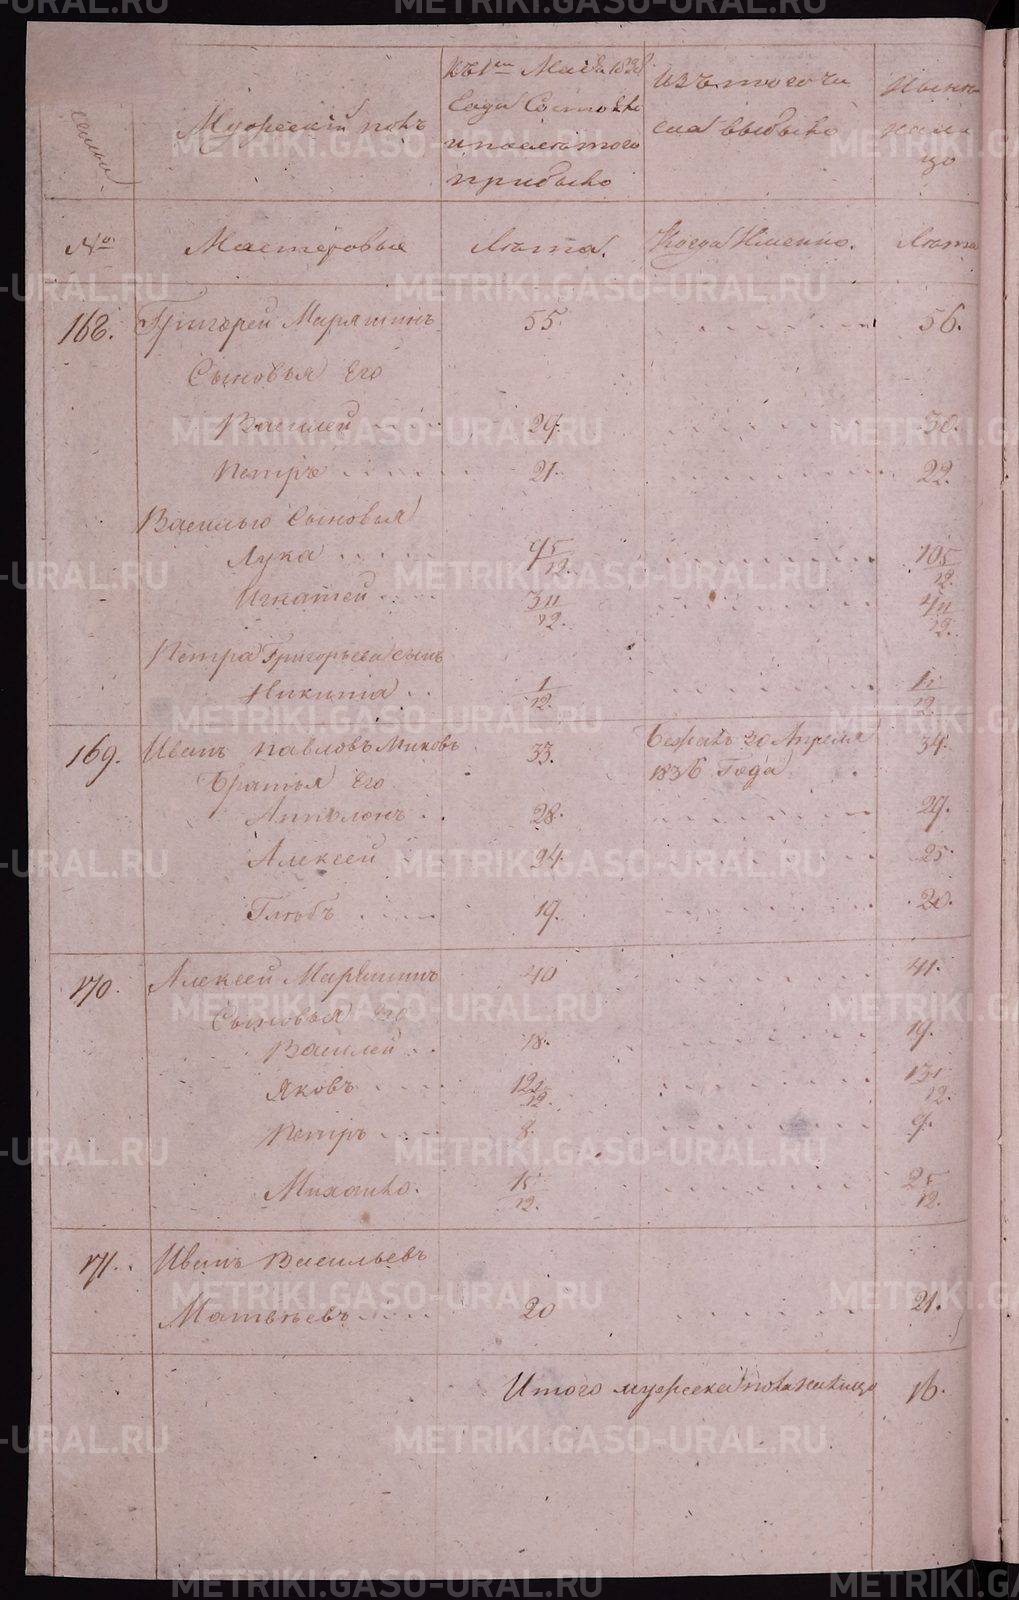 METRIKI.GASO-URAL.RU
семьи
Мужескiй полъ
Къ 1му Маiя 1838
Года Состояло
и после того
прибыло
Изъ того чи
сла выбыло
Ныне
на ли
цо
№
Мастеровые
Лета.
Когда Именно.
Лета
168. Григорей Маряшинъ 55. 56.
Сыновья Его
Василей 29. 30.
Петръ 21. 22.
Василью Сыновья
Лука 9 5/12. 10 5/12.
Игнатей 3 11/12. 4 11/12.
Петра Григорьева сынъ
Никита 1/12. 1 1/12
169. Иванъ Павловъ 33. Бежалъ 20 Апреля 34.
1836 Года
Братья Его
Апполонъ 28. 29.
Алексей 24. 25.
Глебъ 19. 20.
170. Алексей Маряшинъ 40 41.
Сыновья его
Василей 18. 19.
Яковъ 12 1/12. 13 1/12.
Петръ 8. 9.
Михайло. 1 5/12. 2 5/12.
171. Иванъ Васильевъ
Матвеевъ 20 21.
Итого мужеска пола налицо 16.